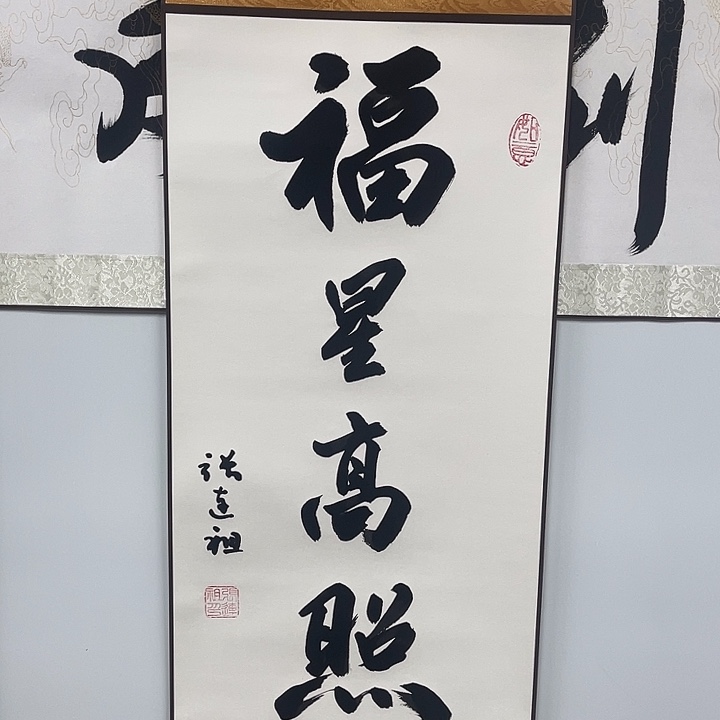 福星高照
张连祖